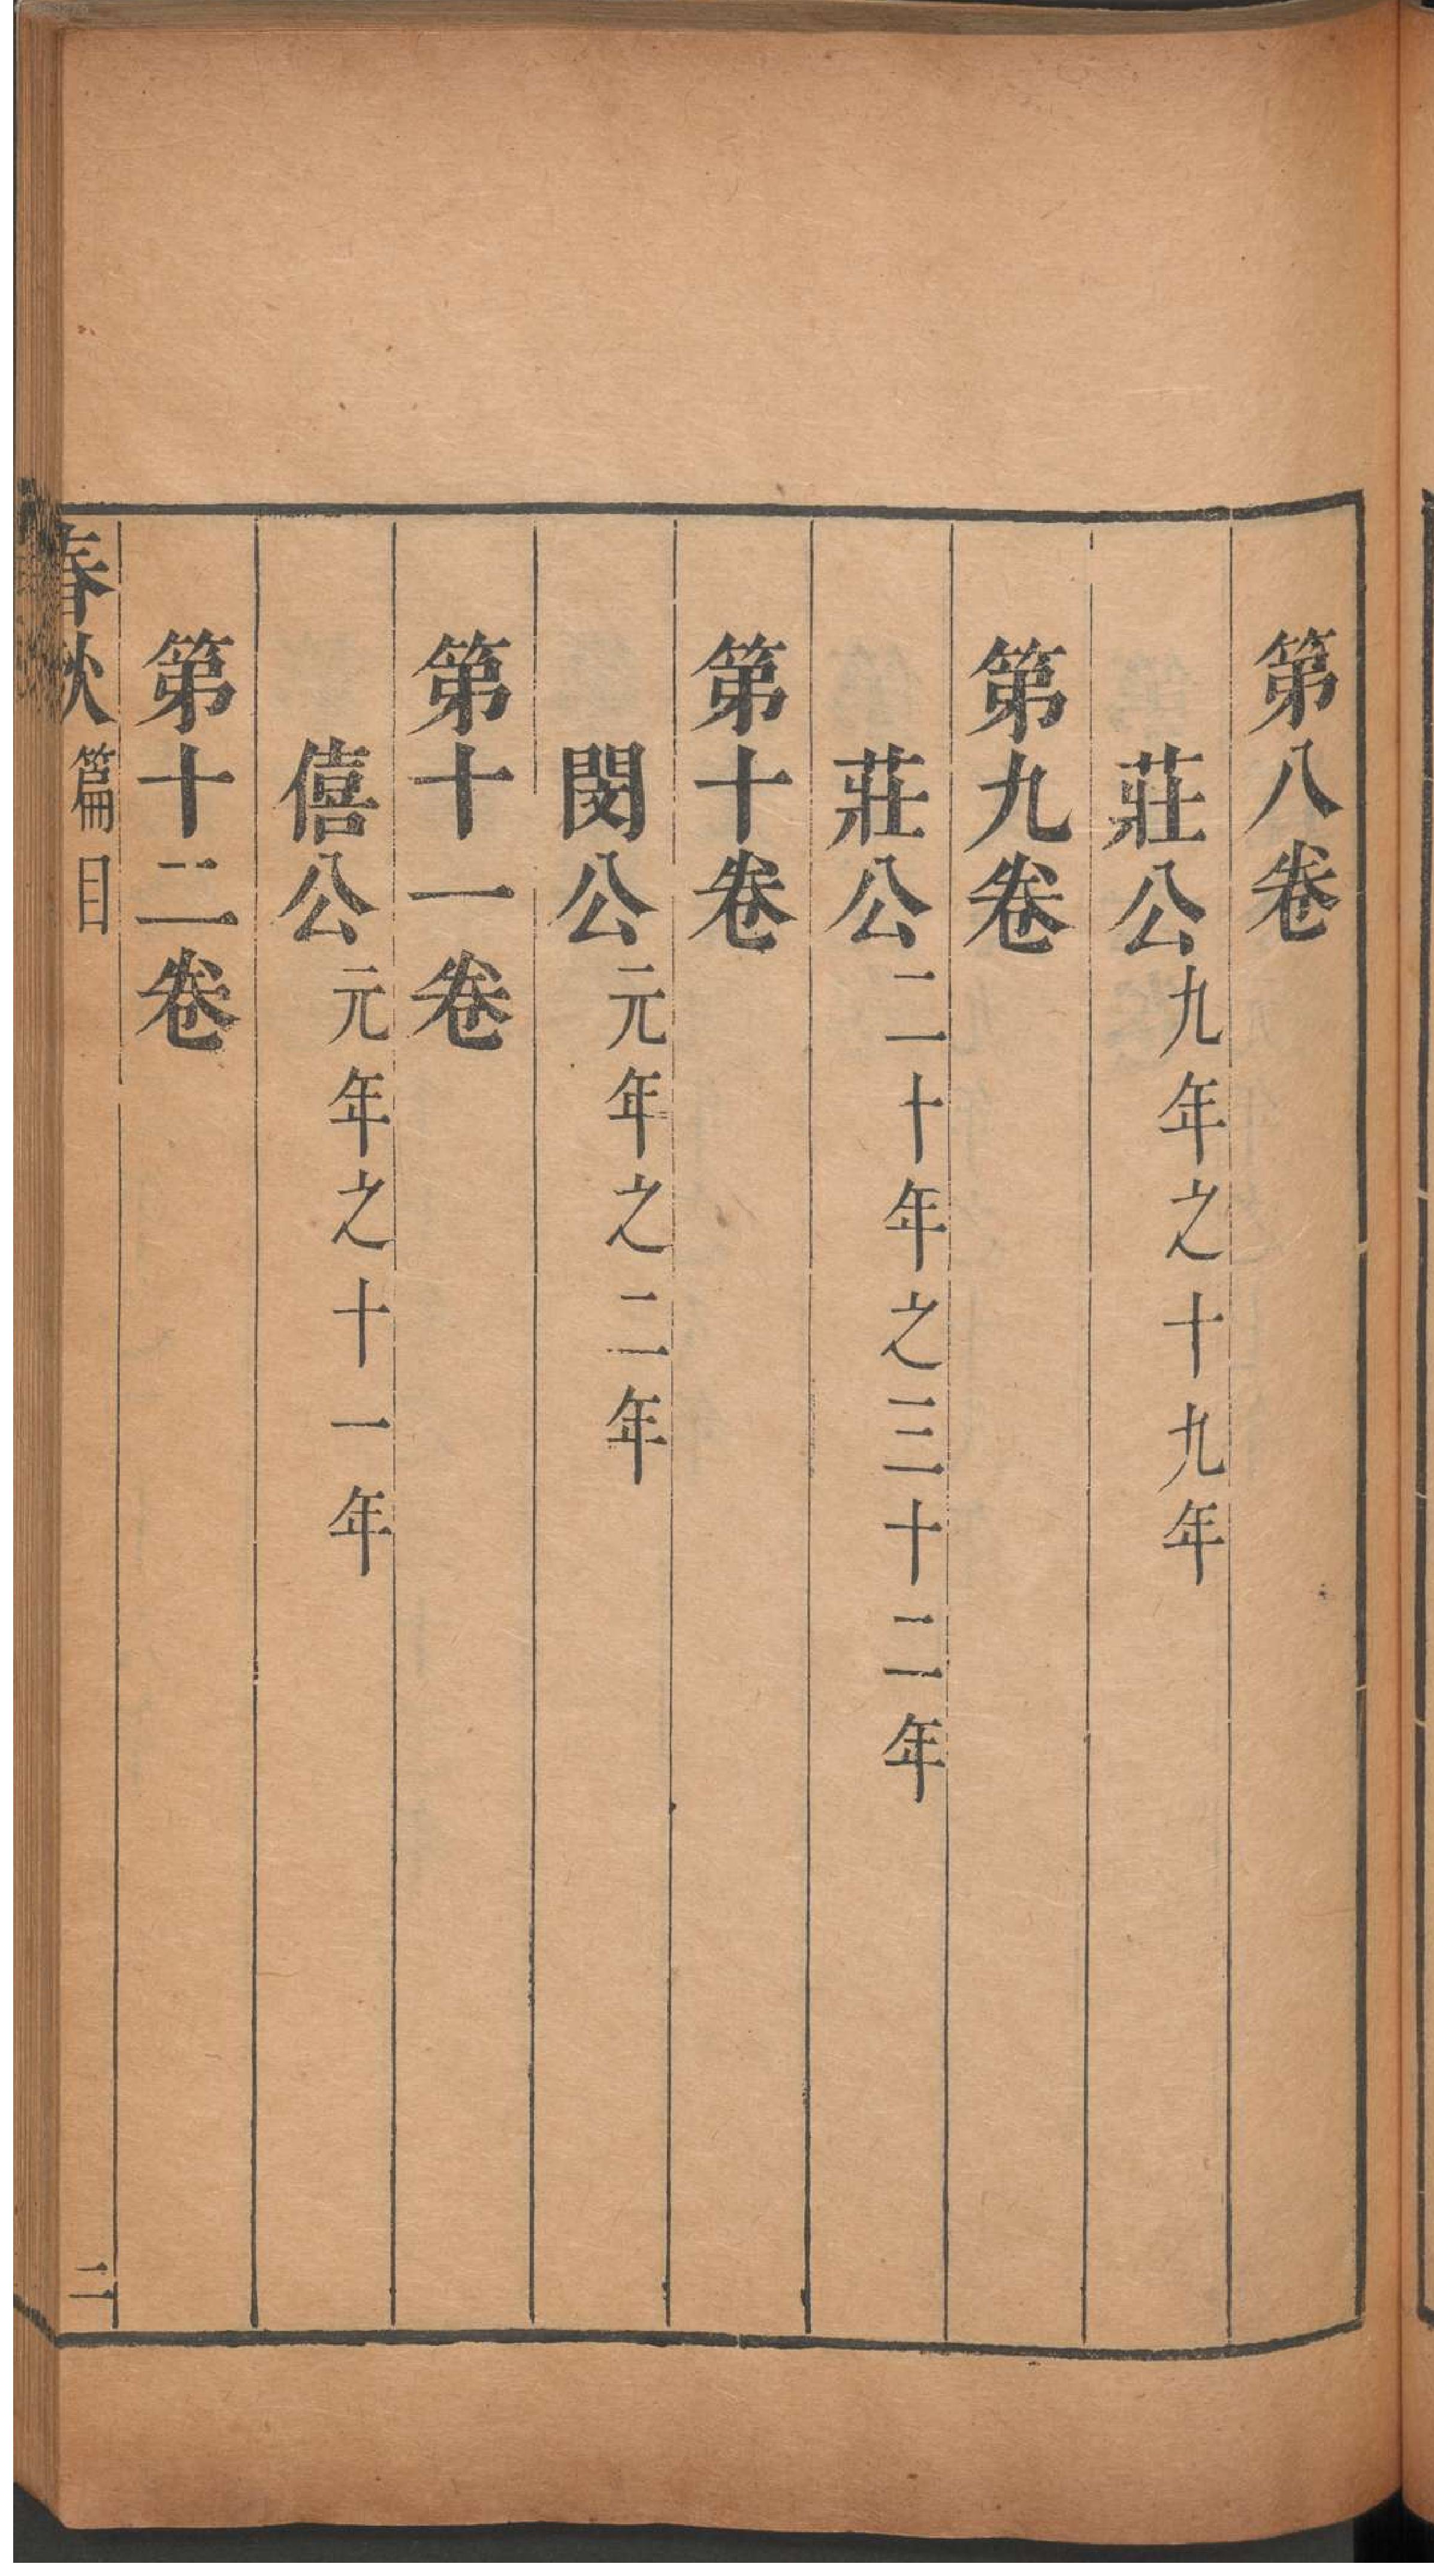 第八卷
莊公九年之十九年
第九卷
莊公二十年之三十二年
第十卷
閔公元年之二年
第十一卷
僖公元年之十一年
第十二卷
春秋篇目 二